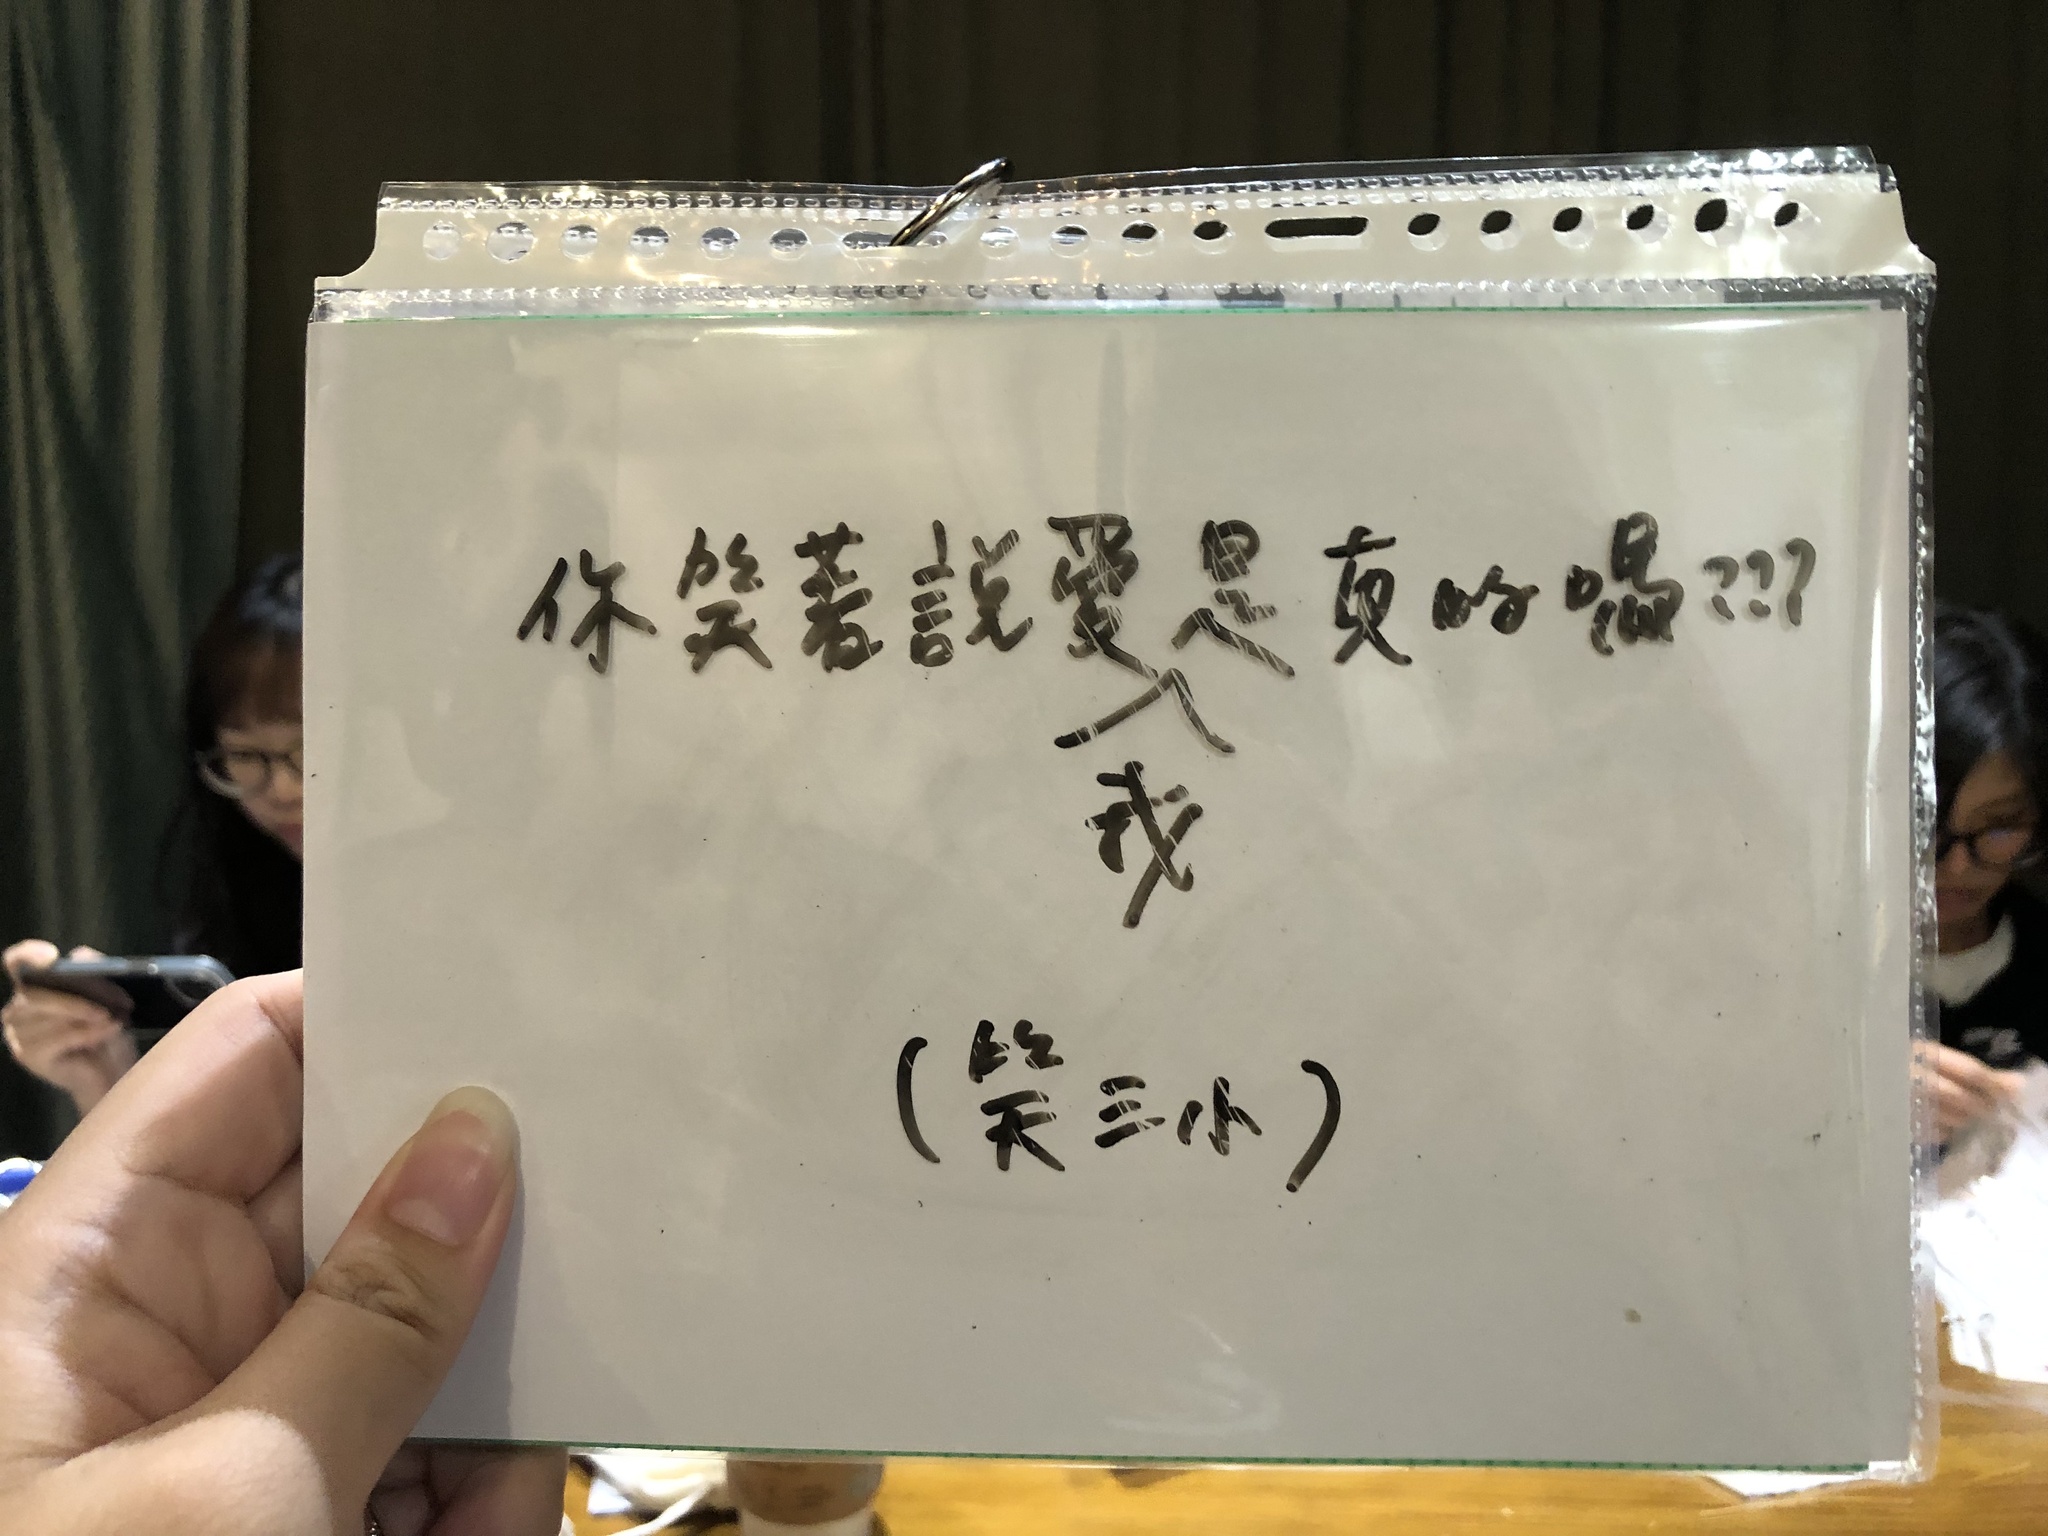 你笑著說愛是真的嗎???
我
(笑三小)